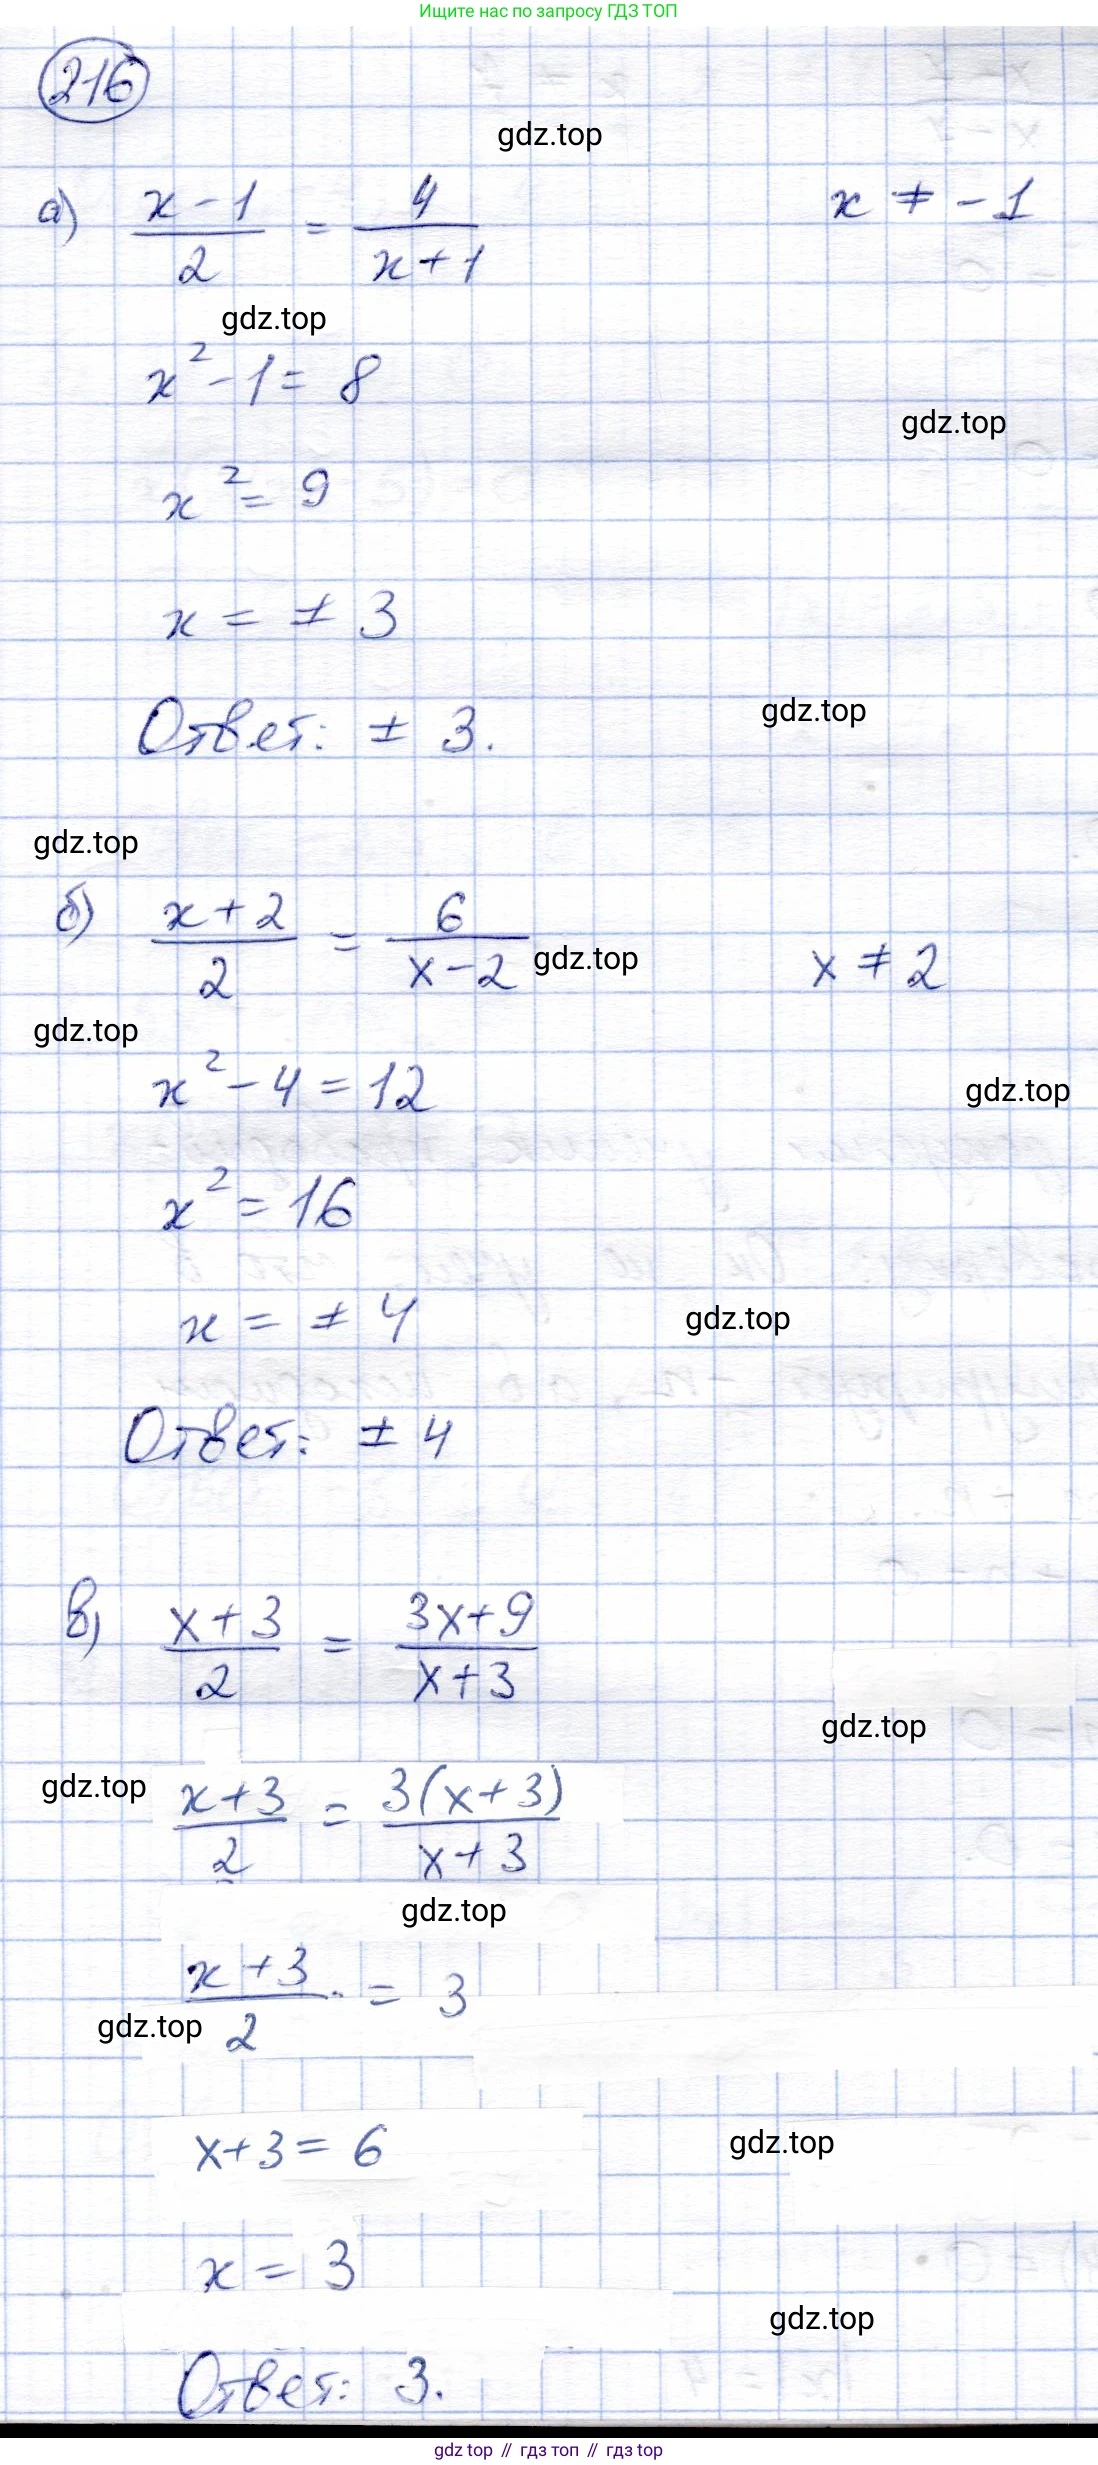 Ищите нас по запросу ГДЗ ТОП
216
gdz.top
а) (x - 1)/2 = 4/(x + 1)    x ≠ -1
gdz.top
x² - 1 = 8
gdz.top
x² = 9
x = ± 3
Ответ: ± 3.
gdz.top
gdz.top
б) (x + 2)/2 = 6/(x - 2)    x ≠ 2
gdz.top
gdz.top
x² - 4 = 12
gdz.top
x² = 16
x = ± 4
gdz.top
Ответ: ± 4
в) (x + 3)/2 = (3x + 9)/(x + 3)
gdz.top
gdz.top
(x + 3)/2 = 3(x + 3)/(x + 3)
gdz.top
(x + 3)/2 = 3
gdz.top
x + 3 = 6
gdz.top
x = 3
gdz.top
Ответ: 3.
gdz top // гдз топ // gdz top